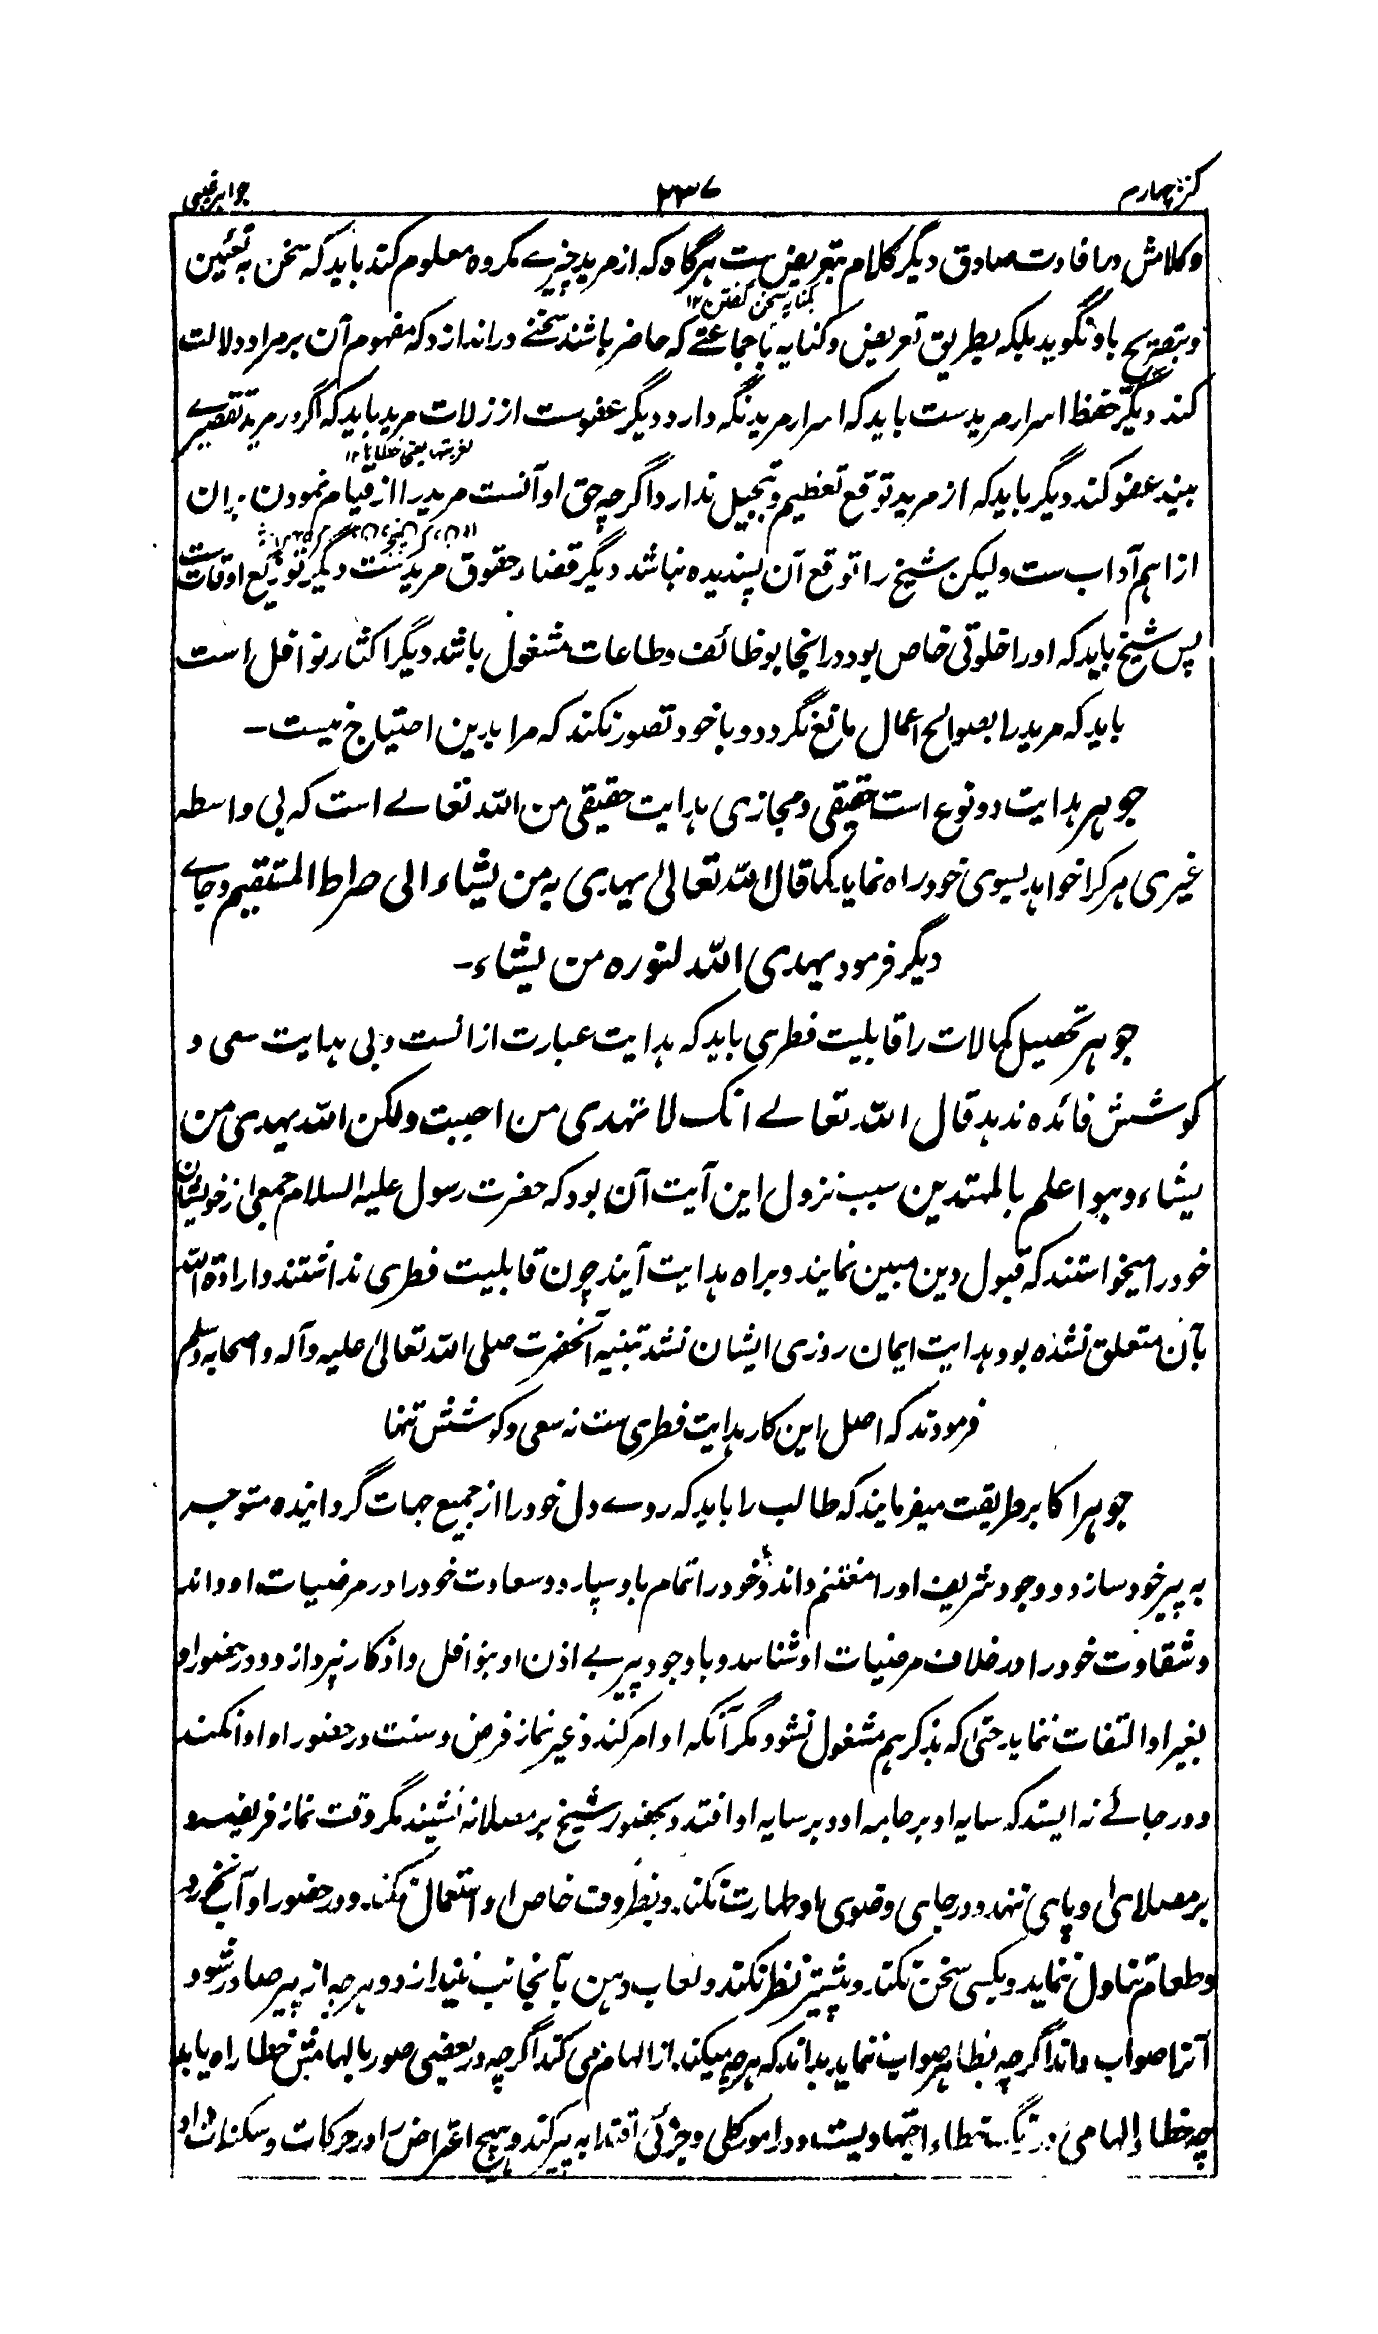 کنز چهارم ۲۳۷ جواهر غیبی
وکلامش درافادت صادق دیگر کلام بتعریض ست هرگاه که از مرید چیزے مکروه معلوم کند باید که سخن به تعئین
بکنایه سخن گفتن ۱۲
وبتصریح باو نگوید بلکه بطریق تعریض وکنایه باجماعتے که حاضر باشند سخنے دراندازد که مفهوم آن بر مراد دلالت
کند دیگر حفظ اسرار مریدست باید که اسرار مرید نگه دارد دیگر عفوست از زلات مرید باید که اگر در مرید تقصیرے
لغزشها یعنی خطایا ۱۲
بیند عفو کند دیگر باید که از مرید توقع تعظیم وتبجیل ندارد اگرچه حق او آنست مرید را از قیام نمودن بران
از اهم آداب ست ولیکن شیخ را توقع آن پسندیده نباشد دیگر قضاء حقوق مریدست دیگر توزیع اوقات ست
پس شیخ باید که اورا خلوتی خاص بود در انجا بوظائف وطاعات مشغول باشد دیگر اکثار نوافل است
باید که مرید را بصوالح اعمال مانع نگردد و با خود تصور نکند که مرا بدین احتیاج نیست –
جوهر هدایت دو نوع است حقیقی ومجازی هدایت حقیقی من الله تعالے است که بی واسطه
غیری هرکرا خواهد بسوی خود راه نماید کما قال الله تعالیٰ یهدی به من یشاء الی صراط المستقیم وجاے
دیگر فرمود یهدی الله لنوره من یشاء –
جوهر تحصیل کمالات را قابلیت فطری باید که هدایت عبارت ازانست و بی هدایت سعی و
کوشش فائده ندهد قال الله تعالے انک لا تهدی من احببت ولکن الله یهدی من
یشاء وهو اعلم بالمهتدین سبب نزول این آیت آن بود که حضرت رسول علیه السلام جمعی از خویشان
خود را میخواستند که قبول دین مبین نمایند و براه هدایت آیند چون قابلیت فطری نداشتند وارادة الله
بآن متعلق نشده بود هدایت ایمان روزی ایشان نشد تنبیه آنحضرت صلی الله تعالیٰ علیه وآله واصحابه وسلم
فرمودند که اصل این کار هدایت فطری ست نه سعی وکوشش تنها
جوهر اکابر طریقت میفرمایند که طالب را باید که روے دل خود را از جمیع جهات گردانیده متوجه
به پیر خود سازد و وجود شریف اورا مغتنم داند و خود را تمام باو سپارد وسعادت خود را در مرضیات او داند
وشقاوت خود را در خلاف مرضیات او شناسد وباوجود پیر بے اذن او بنوافل واذکار نپردازد ودر حضور او
بغیر او التفات ننماید حتی که بذکر هم مشغول نشود مگر آنکه او امر کند وغیر نماز فرض وسنت در حضور او ادا نکند
ودر جائے نه ایستد که سایه او بر جامه او و بر سایه او افتد و بحضور شیخ بر مصلا نه نشیند مگر وقت نماز فریضه و
بر مصلای او پای ننهد ودر جای وضوی او طهارت نکند وبظروف خاص او استعمال نکند ودر حضور او آب نخورد
وطعام تناول ننماید وبکسی سخن نکند وبیشتر نظر نکند ولعاب دهن بآنجانب نیندازد وهرچه از پیر صادر شود
آنرا صواب داند اگرچه بظاهر صواب ننماید بداند که هرچه میکند از الهام می کند اگرچه در بعضی صور بالهامش خطا راه یابد
چه خطاء الهامی در رنگ خطاء اجتهادیست ودر امور کلی وجزئی اقتدا به پیر کند وهیچ اعتراض را در حرکات وسکنات او